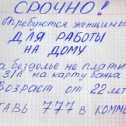 СРОЧНО!
Требуются женщины
ДЛЯ РАБОТЫ
НА ДОМУ
За безделье не плати
З/П на карту банка
Возраст от 22 лет
ТАВЬ 777 в КОММЕ